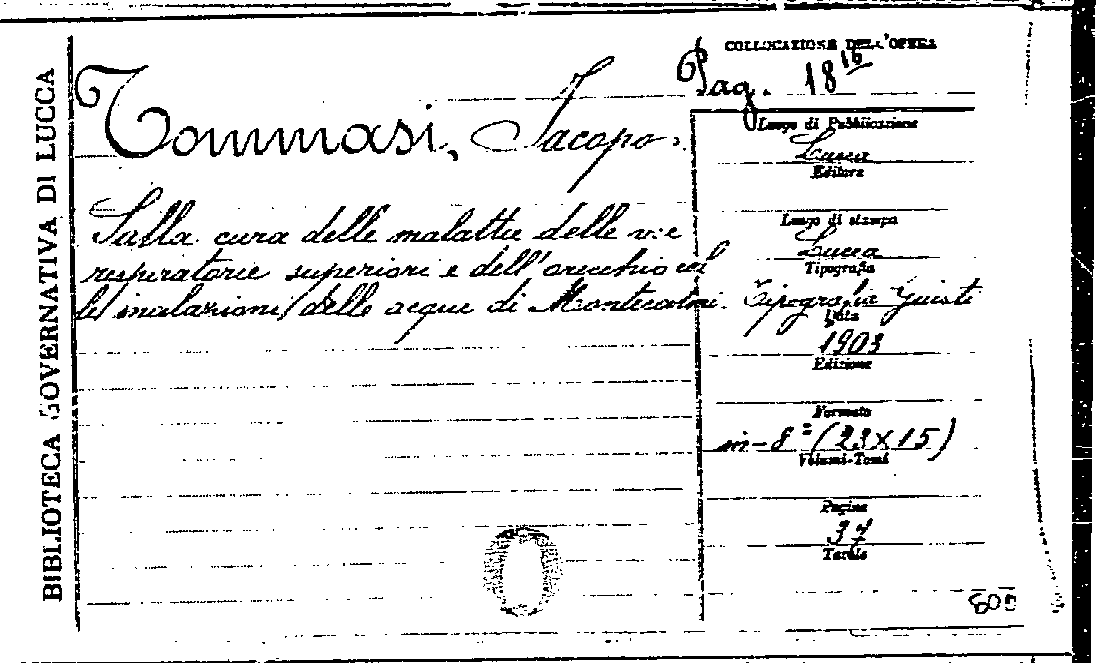 BIBLIOTECA GOVERNATIVA DI LUCCA
COLLOCAZIONE DELL'OPERA
Pag. 18 16
Tommasi, Jacopo.
Sulla cura delle malattie delle vie
respiratorie superiori e dell'orecchio col
le inalazioni delle acque di Montecatini.
Luogo di Pubblicazione
Lucca
Editore
Luogo di stampa
Lucca
Tipografia
Tipografia Giusti
Data
1903
Edizione
Formato
in-8° (23x15)
Volumi-Tomi
Pagine
37
Tavole